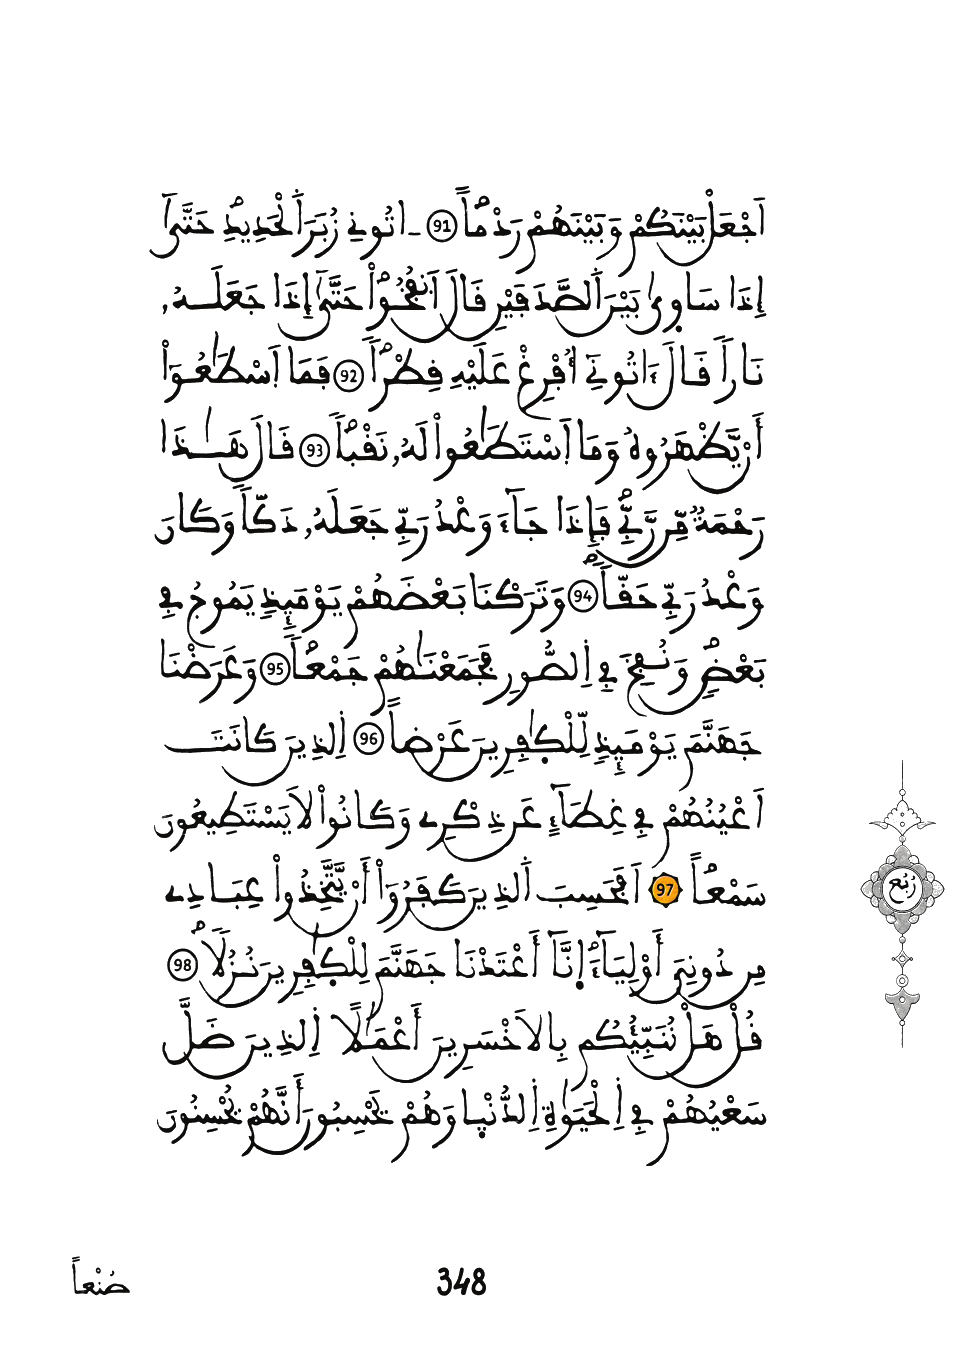 اَجْعَلْ بَيْنَكُمْ وَبَيْنَهُمْ رَدْماً 91 ـ اتُونِے زُبَرَ اَ۬لْحَدِيدِۖ حَتَّيٰٓ
إِذَا سَاو۪يٰ بَيْنَ اَ۬لصَّدَفَيْنِ قَالَ اَ۟نفُخُواْۖ حَتَّيٰٓ إِذَا جَعَلَهُۥ
نَاراٗ قَالَ ءَاتُونِےٓ أُفْرِغْ عَلَيْهِ قِطْراٗۖ 92 فَمَا اَ۪سْطَٰعُوٓاْ
أَنْ يَّظْهَرُوهُ وَمَا اَ۪سْتَطَٰعُواْ لَهُۥ نَقْباٗۖ 93 قَالَ هَٰذَا
رَحْمَةٞ مِّن رَّبِّےۖ فَإِذَا جَآءَ وَعْدُ رَبِّے جَعَلَهُۥ دَكّاٗ وَكَانَ
وَعْدُ رَبِّے حَقّاٗۖ 94 وَتَرَكْنَا بَعْضَهُمْ يَوْمَئِذٖ يَمُوجُ فِے
بَعْضٖۖ وَنُفِخَ فِے اِ۬لصُّورِ فَجَمَعْنَٰهُمْ جَمْعاٗۖ 95 وَعَرَضْنَا
جَهَنَّمَ يَوْمَئِذٖ لِّلْكٰ۪فِرِينَ عَرْضاً 96 اِ۬لذِينَ كَانَتَ
اَعْيُنُهُمْ فِے غِطَآءٍ عَن ذِكْرِے وَكَانُواْ لَا يَسْتَطِيعُونَ
سَمْعاًۖ 97 اَفَحَسِبَ اَ۬لذِينَ كَفَرُوٓاْ أَنْ يَّتَّخِذُواْ عِبَادِے
مِن دُونِيَ أَوْلِيَآءَۖ انَّآ أَعْتَدْنَا جَهَنَّمَ لِلْكٰ۪فِرِينَ نُزُلاٗۖ 98
قُلْ هَلْ نُنَبِّئُكُم بِالَاخْسَرِينَ أَعْمَٰلاً اِ۬لذِينَ ضَلَّ
سَعْيُهُمْ فِے اِ۬لْحَيَوٰةِ اِ۬لدُّنْي۪ا وَهُمْ يَحْسِبُونَ أَنَّهُمْ يُحْسِنُونَ
رُبُع
صُنْعاً
348